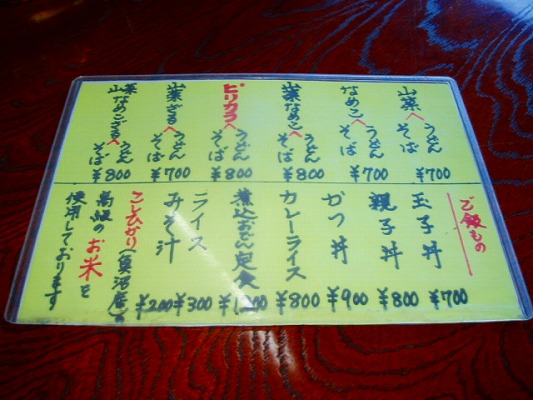 山菜へうどん そば ¥700
なめこへうどん そば ¥700
山菜なめこへうどん そば ¥800
ピリカラへうどん そば ¥800
山菜ざるへうどん そば ¥700
山菜なめこざるへうどん そば ¥800
ご飯もの
玉子丼 ¥700
親子丼 ¥800
かつ丼 ¥900
カレーライス ¥800
煮込おでん定食
ライス ¥300
みそ汁 ¥200
こしひかり(魚沼産)の
高級のお米を
使用しております